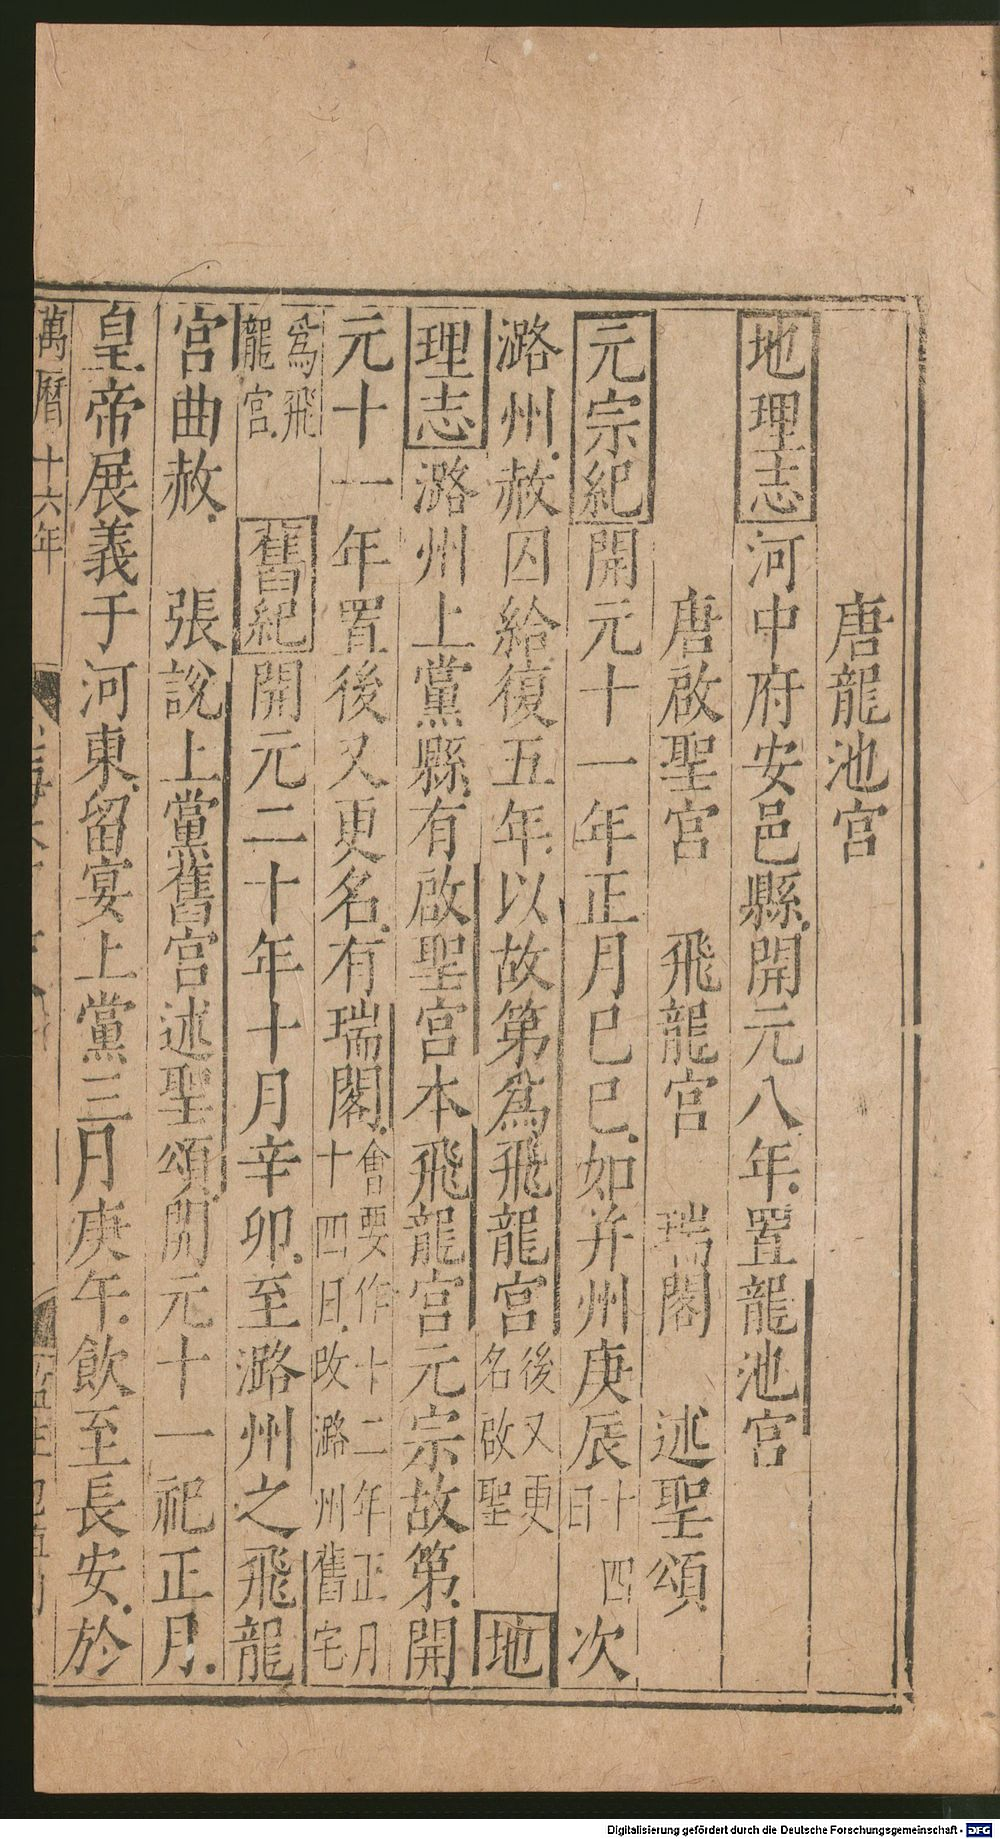 唐龍池宮
地理志河中府安邑縣開元八年置龍池宮
唐啟聖宮　飛龍宮　瑞閣　述聖頌
元宗紀開元十一年正月己巳如并州庚辰十四日次
潞州赦囚給復五年以故第為飛龍宮後又更名啟聖　地
理志潞州上黨縣有啟聖宮本飛龍宮元宗故第開
元十一年置後又更名有瑞閣會要作十二年正月十四日改潞州舊宅
為飛龍宮　舊紀開元二十年十月辛卯至潞州之飛龍
宮曲赦　張說上黨舊宮述聖頌開元十一祀正月
皇帝展義于河東留宴上黨三月庚午飲至長安於
萬曆十六年
Digitalisierung gefördert durch die Deutsche Forschungsgemeinschaft - DFG